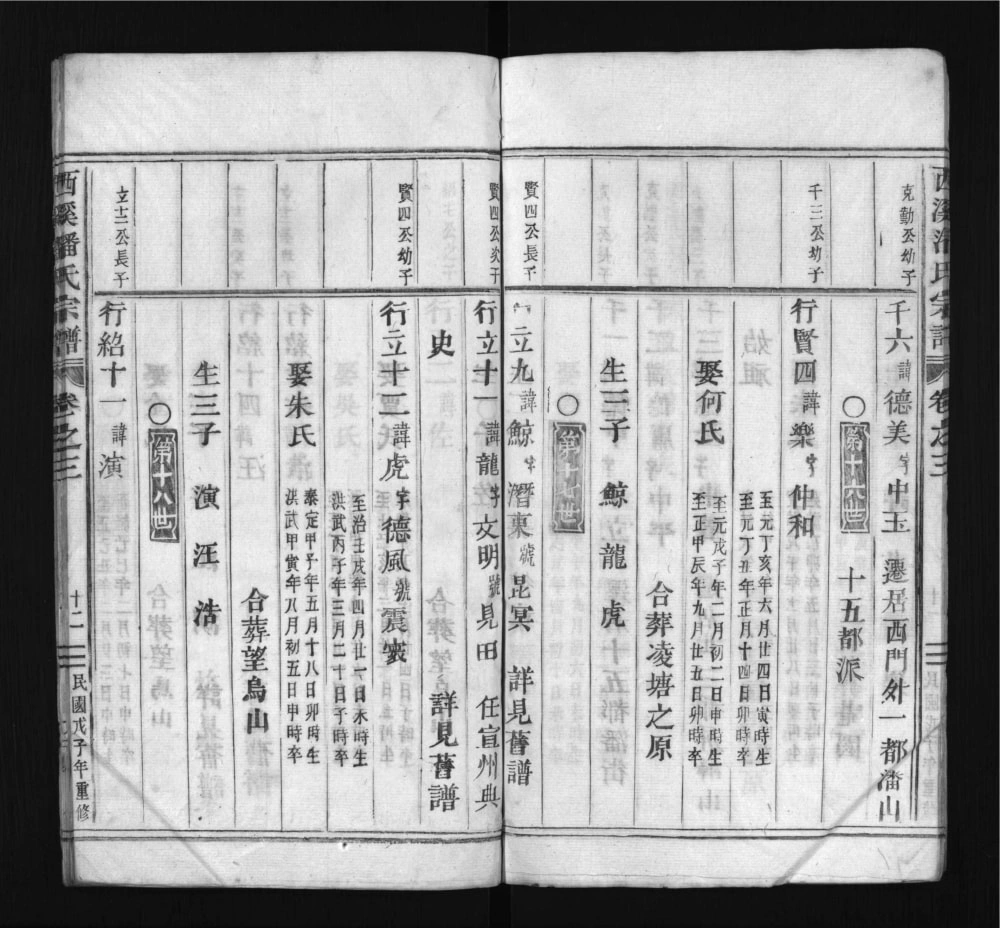 西溪潘氏宗譜 卷之三
克勤公幼子
千六諱德美字中玉 遷居西門外一都潘山
○第十六世 十五都派
千三公幼子
行賢四諱樂字仲和
至元丁亥年六月廿四日寅時生
至元丁丑年正月十四日卯時卒
娶何氏
至元戊子年二月初二日申時生
至正甲辰年九月廿五日卯時卒
合葬凌塘之原
生三子 鯨 龍 虎
○第十七世
賢四公長子
行立九諱鯨字潛東號昆冥 詳見舊譜
賢四公次子
行立十一諱龍字文明號見田 任宣州典
史 詳見舊譜
賢四公幼子
行立十二諱虎字德風號震
至治壬戌年四月廿一日未時生
洪武丙子年三月二十日子時卒
娶朱氏
泰定甲子年五月十八日卯時生
洪武甲寅年八月初五日申時卒
合葬望烏山
生三子 演 汪 浩
○第十八世
立十二公長子
行紹十一諱演
西溪潘氏宗譜 卷之三 十二 民國戊子年重修